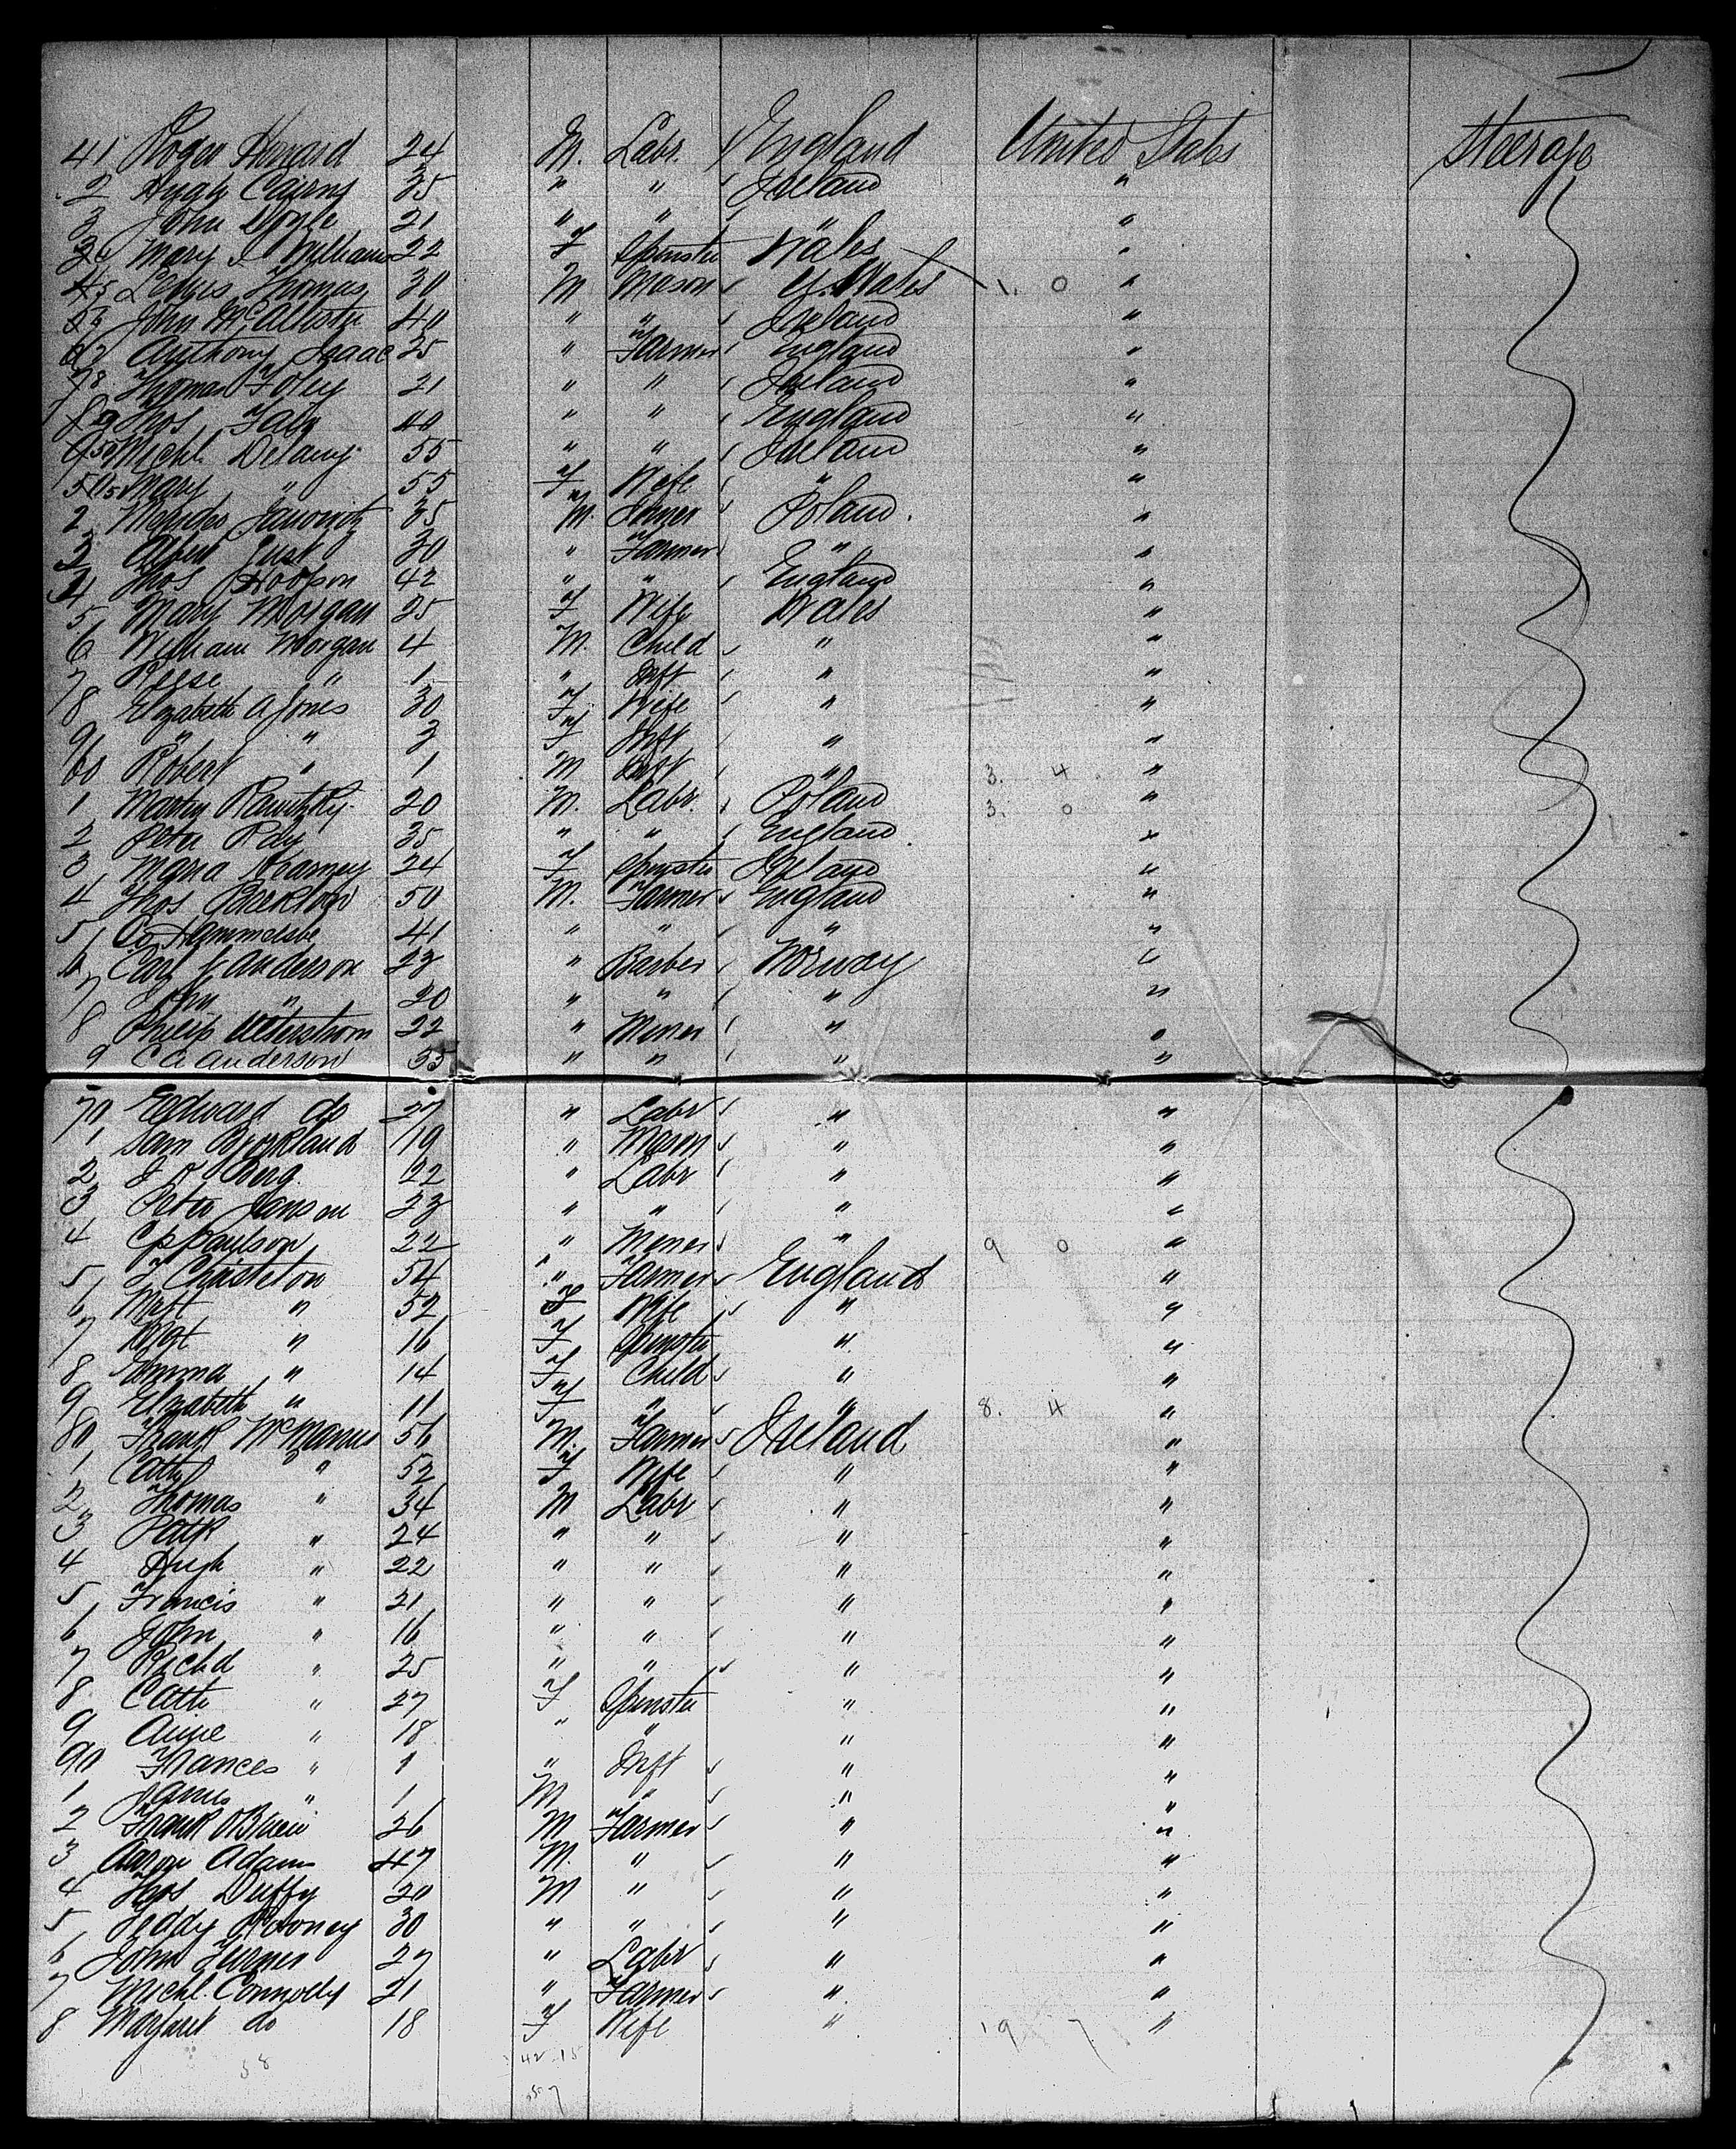 41 Roger Howard 24 M. Labr. England United States Steerage
2 Hugh Cairns 35 " " Ireland "
3 John Doyle 21 " " " "
Mary J Williams 22 F Spinster Wales "
Thomas 30 M Mason Wales 1. 0 "
John McAllister 40 " " Ireland "
Anthony Isaac 25 " Farmer England "
78 Thomas Foley 21 " " Ireland "
Thos 40 " " England "
950 Michl Delany 55 " " Ireland "
Mary " 55 F Wife " "
2 Janowitz 35 M. Poland. "
3 Albert Just 30 " Farmer " "
4 Thos Hobson 42 " " England "
5 Mary Morgan 25 F Wife Wales "
6 William Morgan 4 M. Child " "
7 Reese " 1 " Inft " "
8 Elizabeth A Jones 30 F Wife " "
9 " " 3 F Inft " "
60 Robert " 1 M Inft " 3. 4 "
1 Martin 20 M. Labr. Poland 3. 0 "
2 Peter Ray 35 " " England "
3 Maria Kearney 24 F Spinster Ireland "
4 Thos 50 M. Farmer England "
5 41 " " " "
6 Carl J Anderson 23 " Barber Norway "
7 John " 20 " " " "
8 Philip 22 " Miner " "
9 C A Anderson 55 " " " "
70 Edward do 27 " Labr " "
1 Sam Bjorkland 19 " Mason " "
2 Berg. 22 " Labr " "
3 Peter Janson 23 " " " "
4 C P Paulson 22 " Miner " 9 0 "
5 Charleton 54 " Farmer England "
6 " 52 F Wife " "
7 Mgt " 16 F Spinster " "
8 Emma " 14 F Child " "
9 Elizabeth " 11 F " " 8. 4 "
80 Frank McManus 56 M. Farmer Ireland "
1 Cath " 52 F Wife " "
2 Thomas " 34 M Labr " "
3 Patk " 24 " " " "
4 Hugh " 22 " " " "
5 Francis " 21 " " " "
6 John " 16 " " " "
7 Richd " 25 " " " "
8 Cath " 27 F Spinster " "
9 Annie " 18 " " " "
90 Frances " 1 " Inft " "
1 James " 1 M " " "
2 Frank OBrien 26 M Farmer " "
3 Aaron Adams 47 M. " " "
4 Thos Duffy 20 M " " "
5 Teddy Rooney 30 " " " "
6 John Turner 27 " Labr " "
7 Michl Connolly 21 " Farmer " "
8 Margaret do 18 F Wife " 19 7 "
58 42 15
57